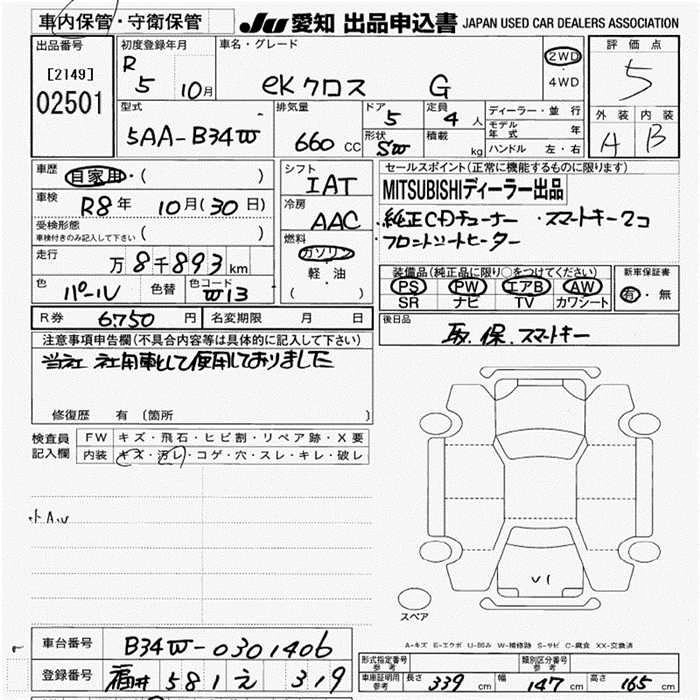 車内保管・守衛保管
JU 愛知 出品申込書 JAPAN USED CAR DEALERS ASSOCIATION
出品番号
[2149]
02501
初度登録年月
R
5 10月
車名・グレード
eKクロス G
2WD
・
4WD
評価点
5
外装 内装
A B
型式
5AA-B34W
排気量
660 CC
ドア
5
形状
SW
定員
4人
積載
kg
ディーラー・並行
モデル年式 年
ハンドル 左・右
車歴
自家用・( )
車検
R8年 10月(30日)
受検形態
車検付きのみ記入して下さい ( )
走行
万8千893km
色
パール
色替
色コード
W13
シフト
IAT
冷房
AAC
燃料
ガソリン
軽・油
( )
セールスポイント(正常に機能するものに限ります)
MITSUBISHIディーラー出品
・純正CDチューナー ・スマートキー2コ
・フロントシートヒーター
装備品(純正品に限り○をつけてください)
PS PW エアB AW
SR ナビ TV カワシート
新車保証書
有・無
R券 6,750円
名変期限 月 日
後日品
取、保、スマートキー
注意事項申告欄(不具合内容等は具体的に記入して下さい)
当社 社用車として使用しておりました
修復歴 有 [箇所 ]
検査員
記入欄
FW キズ・飛石・ヒビ割・リペア跡・X要
内装 キズ・汚レ・コゲ・穴・スレ・キレ・破レ
小A.U
U1
スペア
A-キズ E-エクボ U-凹み W-補修跡 S-サビ C-腐食 XX-交換済
車台番号 B34W-0301406
登録番号 福井 581 え 319
形式指定番号
参考
類別区分番号
参考
車庫証明用
参考
長さ 339 cm 幅 147 cm 高さ 165 cm